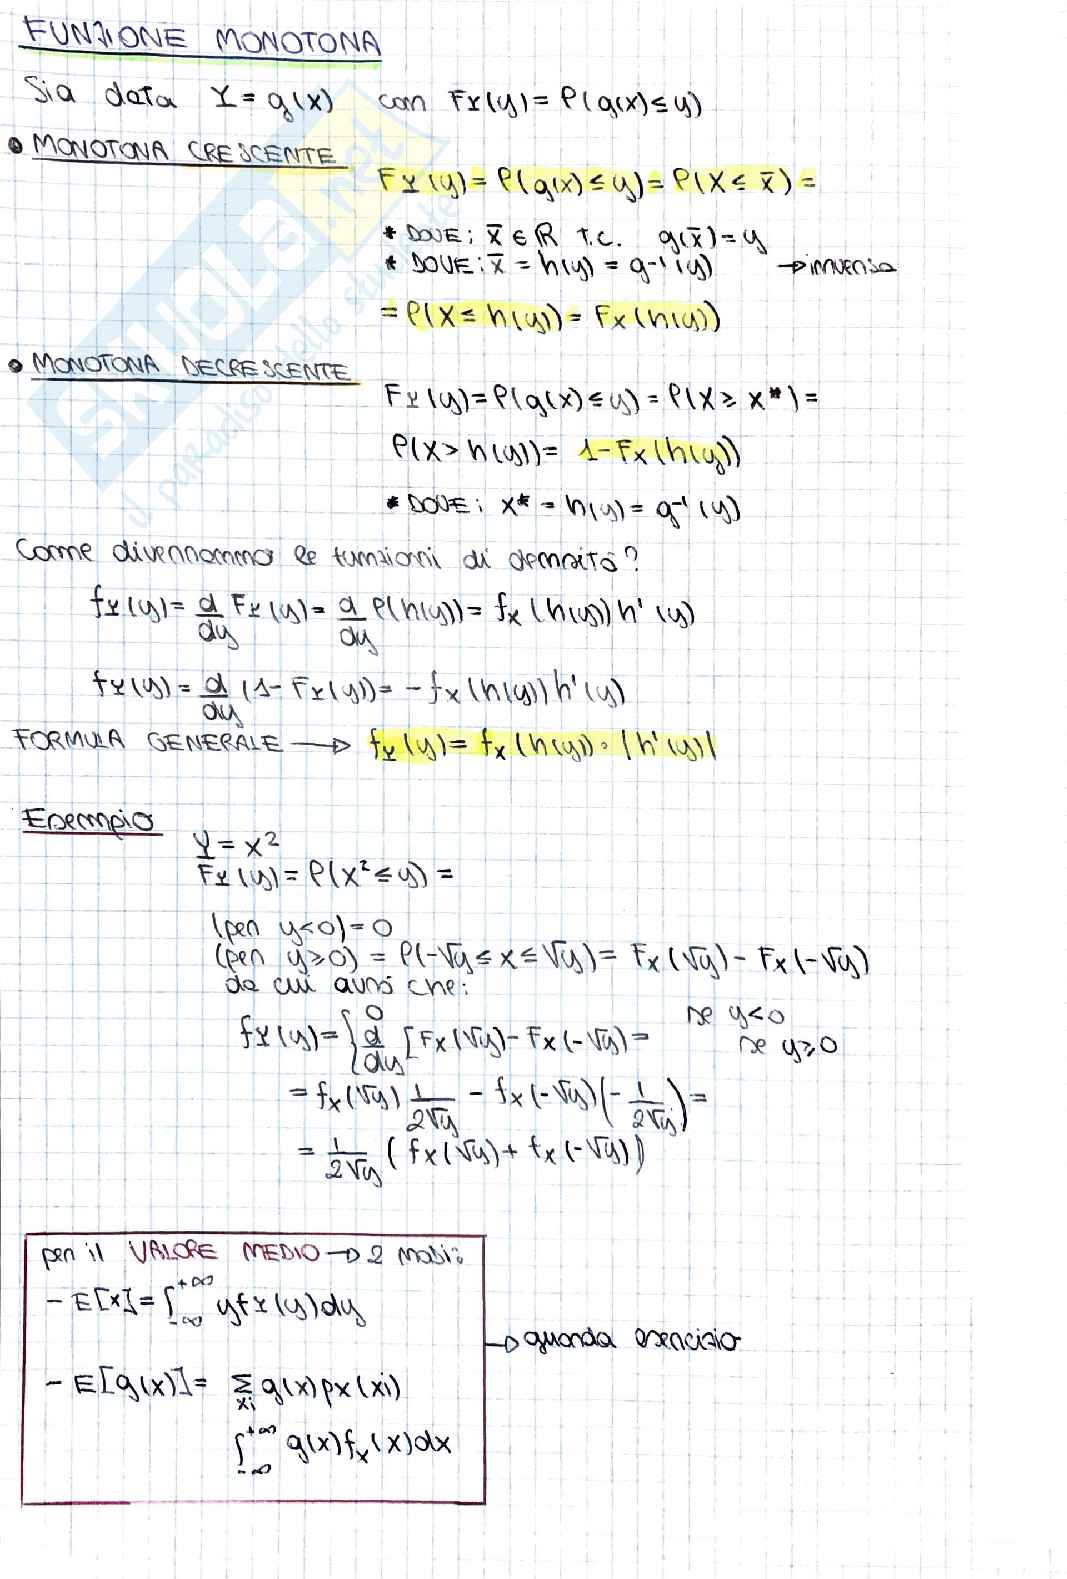 FUNZIONE MONOTONA
Sia data Y = g(x) con FY(y) = P(g(x) ≤ y)
• MONOTONA CRESCENTE
FY(y) = P(g(x) ≤ y) = P(X ≤ x̄) =
* DOVE: x̄ ∈ R T.C. g(x̄) = y
* DOVE: x̄ = h(y) = g⁻¹(y) → inversa
= P(X ≤ h(y)) = FX(h(y))
• MONOTONA DECRESCENTE
FY(y) = P(g(x) ≤ y) = P(X ≥ x*) =
P(X > h(y)) = 1 - FX(h(y))
* DOVE: x* = h(y) = g⁻¹(y)
Come diverranno le funzioni di densità?
fY(y) = d/dy FY(y) = d/dy P(h(y)) = fX(h(y)) h'(y)
fY(y) = d/dy (1 - FY(y)) = - fX(h(y)) h'(y)
FORMULA GENERALE → fY(y) = fX(h(y)) · |h'(y)|
Esempio
Y = x²
FY(y) = P(x² ≤ y) =
(per y<0) = 0
(per y≥0) = P(-√y ≤ x ≤ √y) = FX(√y) - FX(-√y)
da cui avrò che:
fY(y) = { 0 se y<0
d/dy [FX(√y) - FX(-√y) = se y≥0
= fX(√y) 1/2√y - fX(-√y)(-1/2√y) =
= 1/2√y (fX(√y) + fX(-√y))
per il VALORE MEDIO → 2 modi:
- E[X] = ∫-∞+∞ y fY(y) dy
→ guarda esercizio
- E[g(x)] = Σxi g(x) pX(xi)
∫-∞+∞ g(x) fX(x) dx
SKUOLA.net
il paradiso dello studente